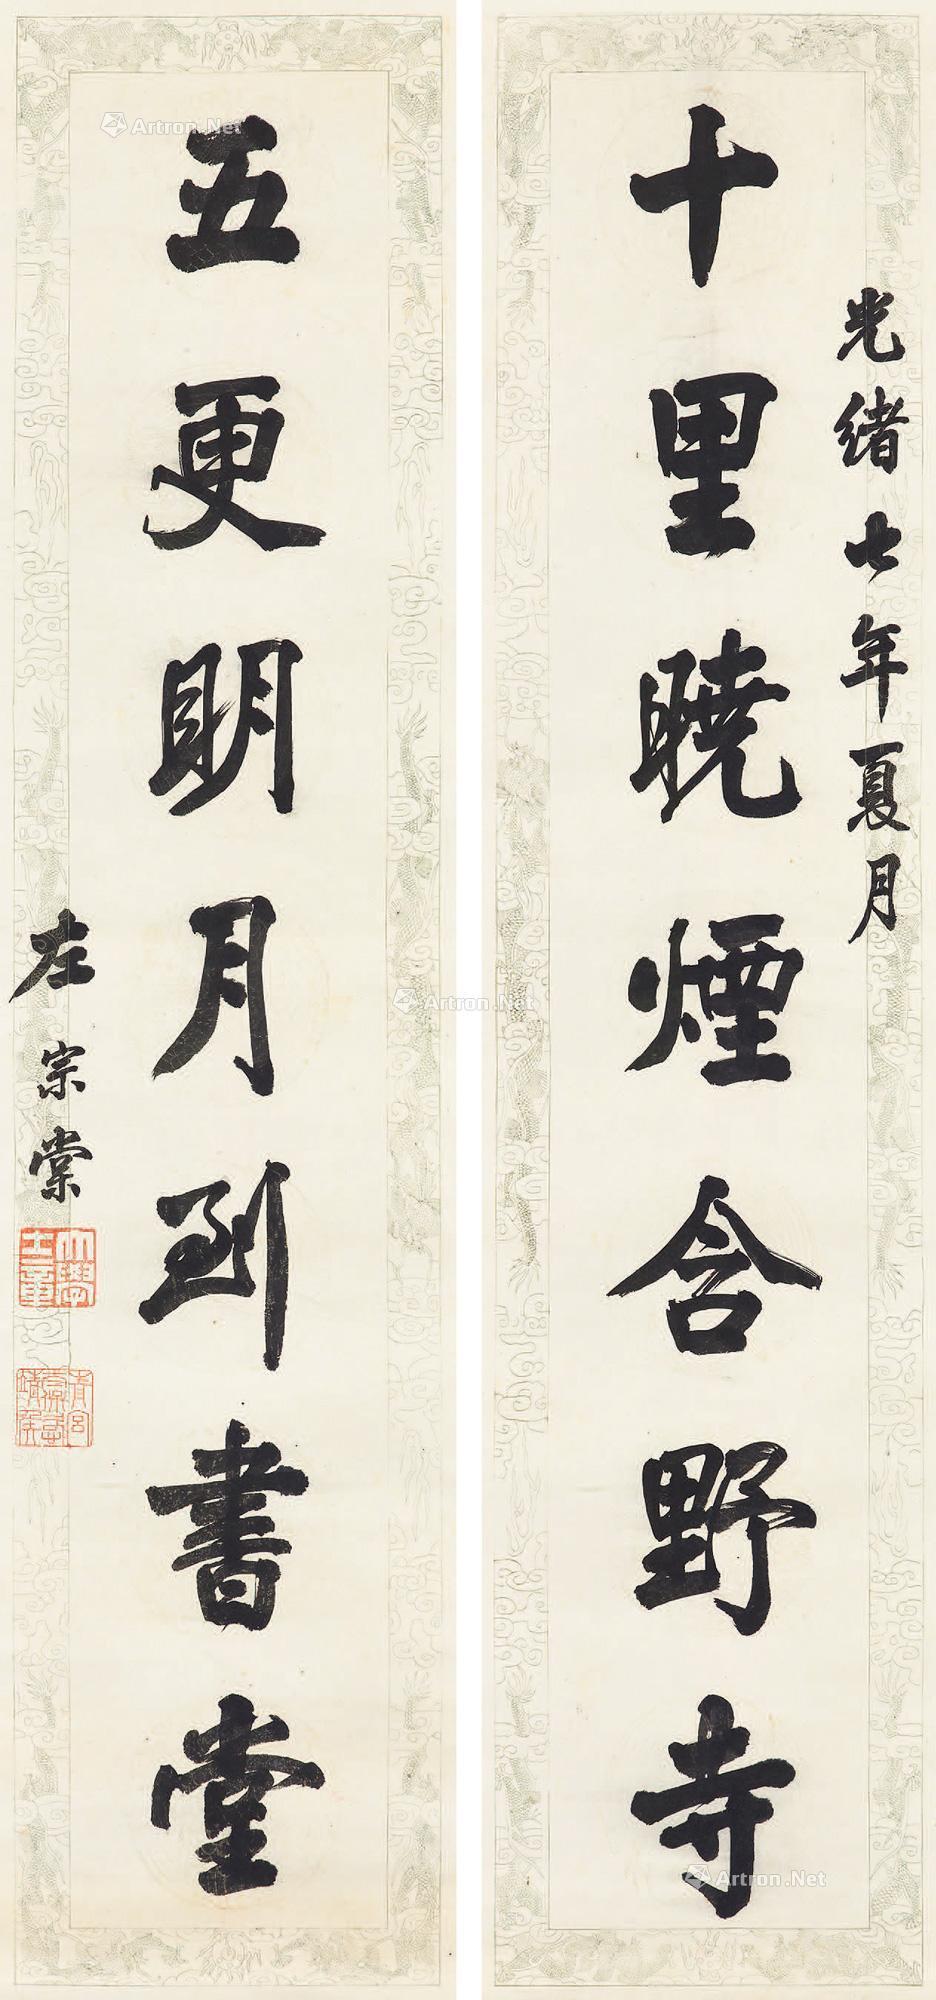 光緒七年夏月
十里曉煙含野寺
五更明月到書堂
左宗棠
大學士章
青宮太保恪靖侯
Artron.Net
Artron.Net
Artron.Net